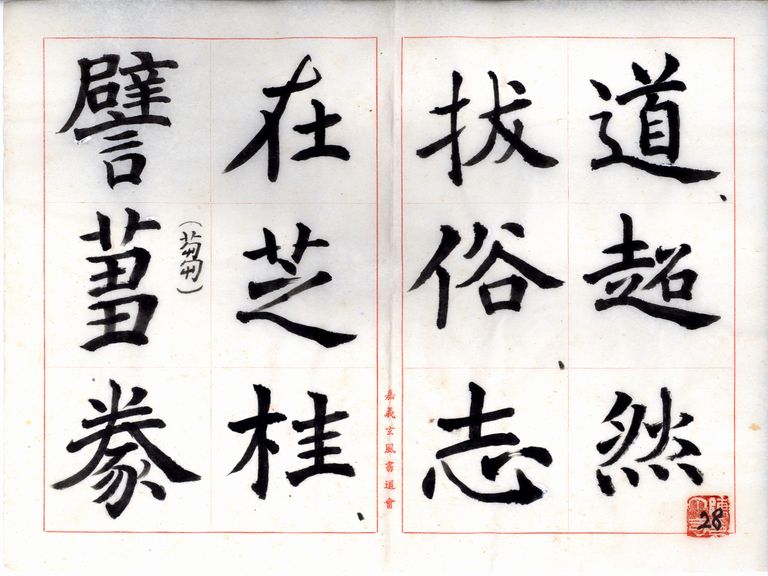 道超然
拔俗志
在芝桂
譬蒭豢
(蒭)
嘉義玄風書道會
28